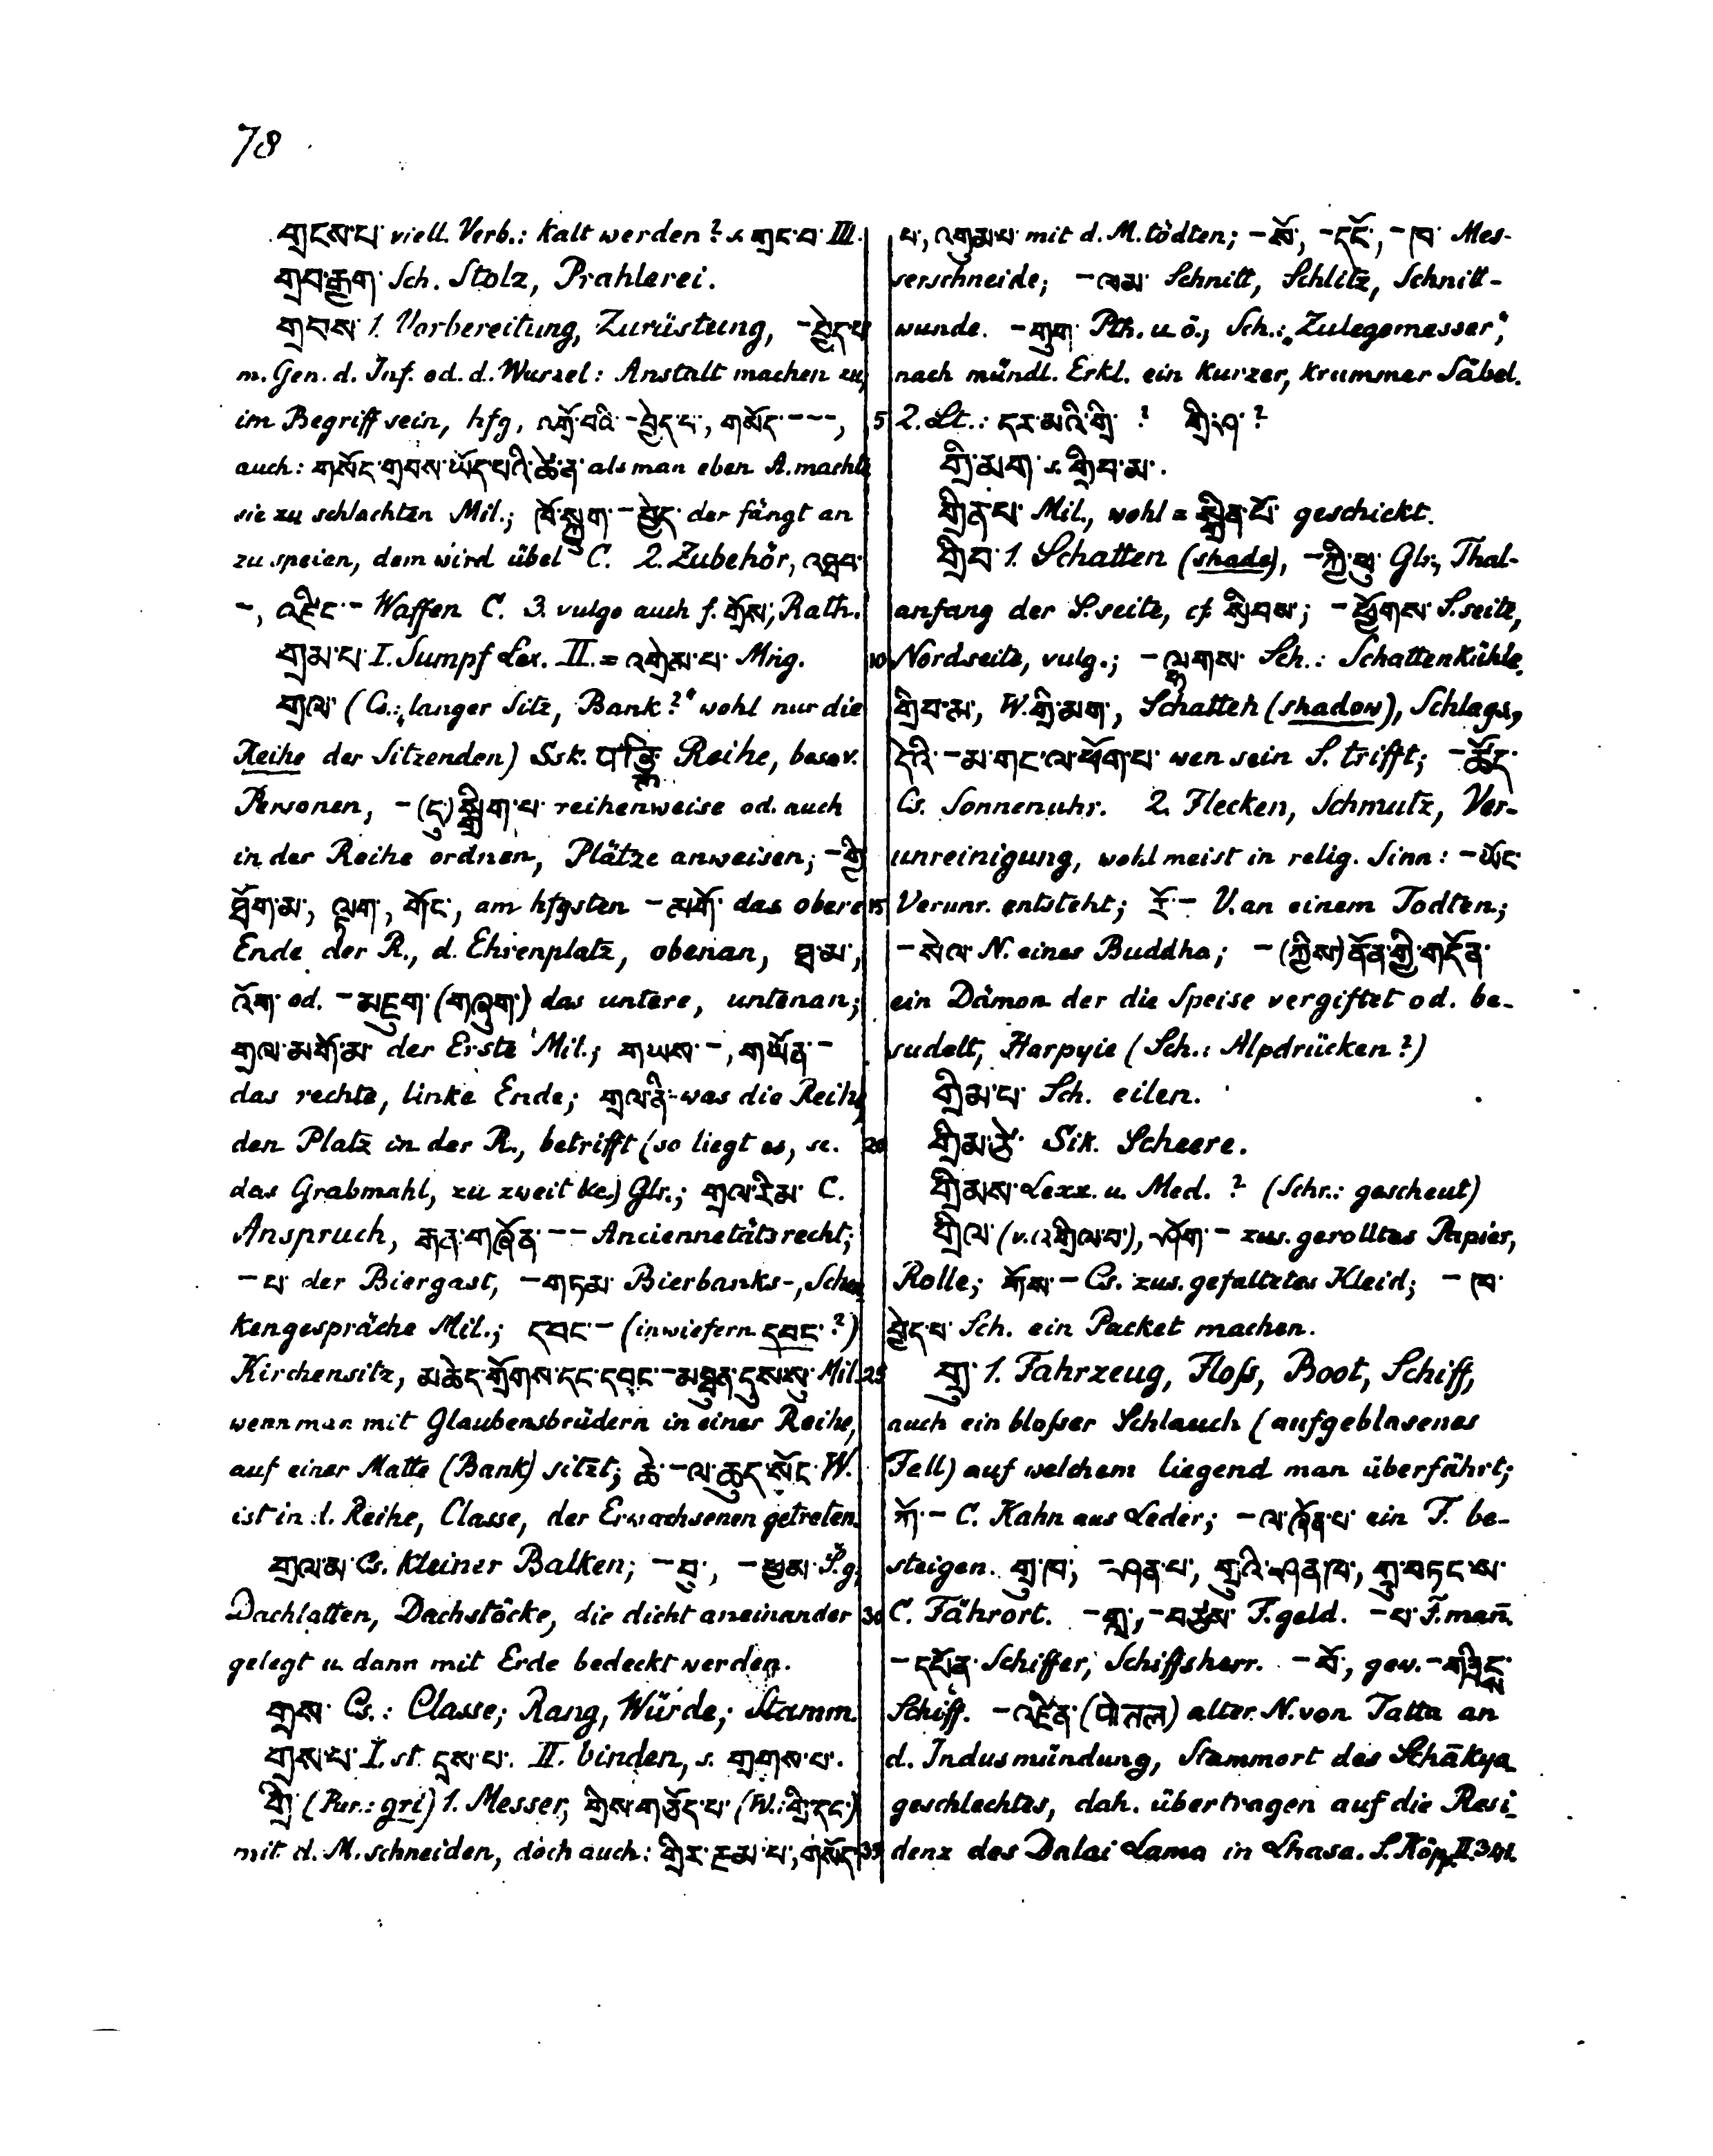 78
གྲངས་པ་ viell. Verb.: kalt werden? s. གྲང་བ་ III.
གྲབ་རྒྱག་ Sch. Stolz, Prahlerei.
གྲབས་ 1. Vorbereitung, Zurüstung, –བྱེད་པ
m. Gen. d. Inf. od. d. Wurzel: Anstalt machen zu,
im Begriff sein, hfg, འགྲོ་བའི་–བྱེད་པ་, གསོད་–––,
auch: གསོད་གྲབས་ཡོད་པའི་ཚེ་ན་ als man eben A. machte
sie zu schlachten Mil.; ཁོ་སྐྱུག་–བྱེད་ der fängt an
zu speien, dem wird übel C. 2. Zubehör, འཐབ་
–, འཛིང་– Waffen C. 3. vulgo auch f. གྲོས་, Rath.
གྲམ་པ་ I. Sumpf Lex. II. = འགྲེམ་པ་ Mng.
གྲལ་ (Cs.: „langer Sitz, Bank?“ wohl nur die
Reihe der Sitzenden) Ssk. Reihe, besov.
Personen, –(དུ་)སྒྲིག་པ་ reihenweise od. auch
in der Reihe ordnen, Plätze anweisen; –གྱི
ཐོག་མ་, ལྟག་, གོང་, am hfgsten –མགོ་ das obere
Ende der R., d. Ehrenplatz, obenan, ཐ་མ་,
འོག་ od. –མཇུག་ (གཞུག་) das untere, untenan;
གྲལ་མགོ་མ་ der Erste Mil.; གཡས་–, གཡོན་–
das rechte, linke Ende; གྲལ་ནི་ was die Reihe
den Platz in der R., betrifft (so liegt es, sc.
das Grabmahl, zu zweit &c.) Glr.; གྲལ་རིམ་ C.
Anspruch, རྒན་གཞོན་–– Anciennetätsrecht;
–པ་ der Biergast, –གཏམ་ Bierbanks-, Schen
kengespräche Mil.; དབང་– (inwiefern དབང་?)
Kirchensitz, མཆེད་གྲོགས་དང་དབང་–མཐུན་དུས་སུ་ Mil.
wenn man mit Glaubensbrüdern in einer Reihe,
auf einer Matte (Bank) sitzt; ཆེ་–ལ་ཆུད་སོང་ W.
ist in d. Reihe, Classe, der Erwachsenen getreten.
གྲལ་མ་ Cs. kleiner Balken; –བུ་, –ཕྱམ་ S.g.
Dachlatten, Dachstöcke, die dicht aneinander
gelegt u. dann mit Erde bedeckt werden.
གྲས་ Cs.: Classe; Rang, Würde; Stamm.
གྲས་པ་ I. st. དྲས་པ་. II. binden, s. གྲགས་པ་.
གྲི་ (Pur.: gri) 1. Messer, གྲིས་གཅོད་པ་ (W.: གྲི་དང་)
mit d. M. schneiden, doch auch: གྲིར་རྔམ་པ་, གསོད
པ་, འགུམ་པ་ mit d. M. tödten; –སོ་, –དངོ་, –ཁ་ Mes-
serschneide; –ལམ་ Schnitt, Schlitz, Schnitt-
wunde. –གུག་ Pth. u. ö., Sch.: „Zulegemesser“,
nach mündl. Erkl. ein kurzer, krummer Säbel.
5 2. Lt.: དར་མའི་གྲི་ ? གྲི་ཤ་ ?
གྲི་མག་ s. གྲིབ་མ་.
གྲིན་པ་ Mil., wohl = སྒྲིན་པོ་ geschickt.
གྲིབ་ 1. Schatten (shade), –ཀྱི་ཕུ་ Glr., Thal-
anfang der S. seite, cf སྲིབས་; –ཕྱོགས་ S. seite,
10 Nordseite, vulg.; –ལྷགས་ Sch.: Schattenkühle.
གྲིབ་མ་, W. གྲི་མག་, Schatten (shadow), Schlags,
དེའི་–མ་གང་ལ་ཕོག་པ་ wen sein S. trifft; –ཚོད་
Cs. Sonnenuhr. 2. Flecken, Schmutz, Ver-
unreinigung, wohl meist in relig. Sinn: –ཡོང་
15 Verunr. entsteht; རོ་– V. an einem Todten;
–སེལ་ N. eines Buddha; –(ཀྱིས)ནོན་གྱི་གདོན་
ein Dämon der die Speise vergiftet od. be-
sudelt, Harpyie (Sch.: Alpdrücken?)
གྲིམ་པ་ Sch. eilen.
20 གྲིམ་ཙེ་ Sik. Scheere.
གྲིམས་ Lexx. u. Med. ? (Schr.: gescheut)
གྲིལ་ (v. འགྲིལ་བ་), ཤོག་– zus. gerolltes Papier,
Rolle; གོས་– Cs. zus. gefaltetes Kleid; –ཁ་
བྱེད་པ་ Sch. ein Packet machen.
25 གྲུ་ 1. Fahrzeug, Floß, Boot, Schiff,
auch ein bloßer Schlauch (aufgeblasenes
Fell) auf welchem liegend man überfährt;
ཀོ་– C. Kahn aus Leder; –ལ་ཞོན་པ་ ein F. be-
steigen. གྲུ་ཁ་, –ཤན་པ་, གྲུའི་ཤན་ཁ་, གྲུ་བཏང་ས་
30 C. Fährort. –གླ་, –བཙས་ F. geld. –པ་ F. mañ.
–དཔོན་ Schiffer, Schiffsherr. –བོ་, gew. –གཟིངས་
Schiff. –འཛིན་ (पोतल) alter N. von Tatta an
d. Indusmündung, Stammort des Schākya
geschlechtes, dah. übertragen auf die Resi-
35 denz des Dalai Lama in Lhasa. S. Köpp. II. 341.